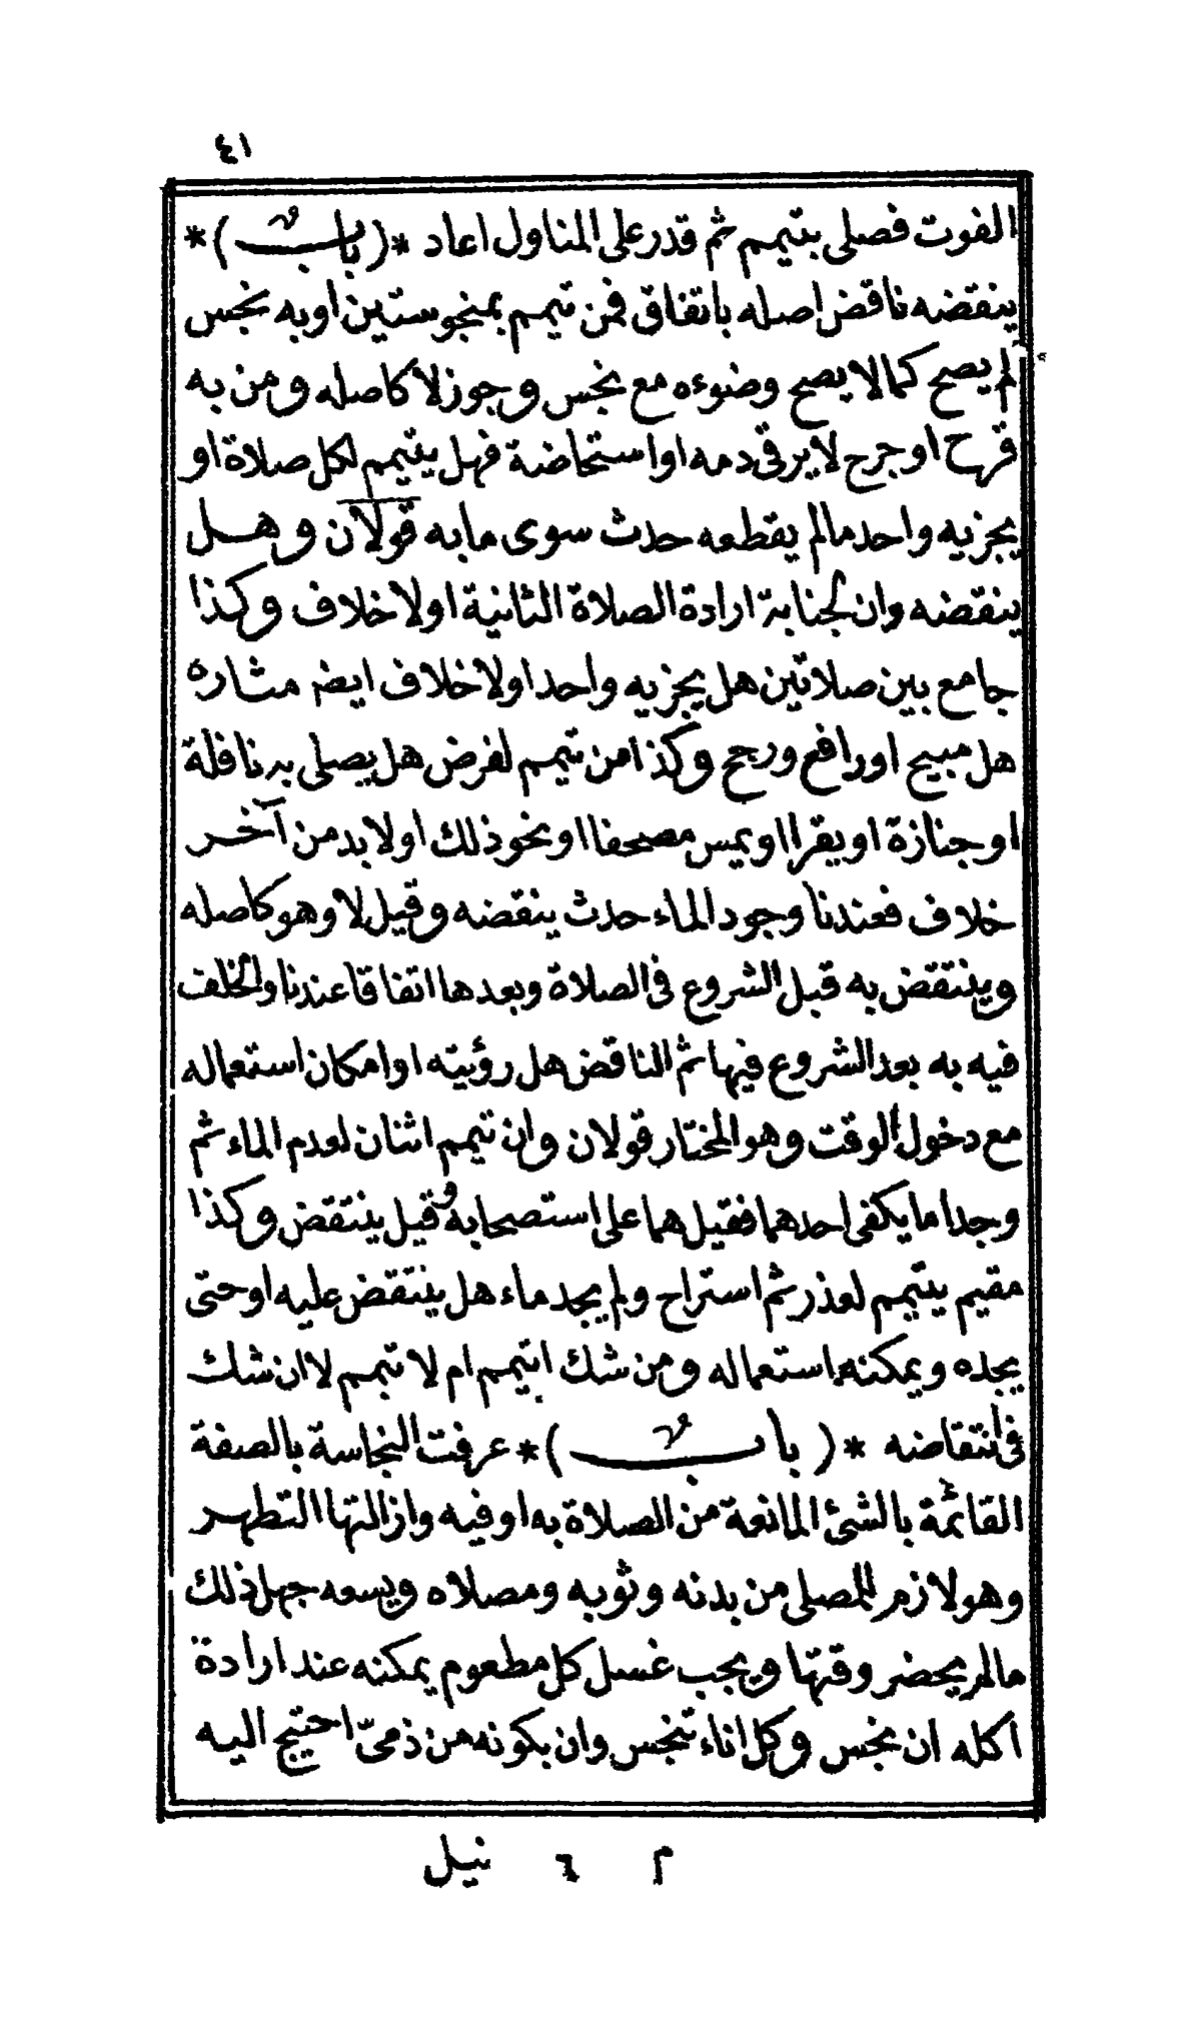 ٤١
الفوت فصلى بتيمم ثم قدر على المناول اعاد *(باب)*
ينقضه ناقض اصله باتفاق فمن تيمم بمنجوستين او به نجس
لم يصح كما لا يصح وضوءه مع نجس وجوز لا كاصله ومن به
قرح او جرح لا يرقى دمه او استحاضة فهل يتيمم لكل صلاة او
يجزيه واحد ما لم يقطعه حدث سوى ما به قولان وهل
ينقضه وان لجنابة ارادة الصلاة الثانية او لا خلاف وكذا
جامع بين صلاتين هل يجزيه واحد او لا خلاف ايضا مثاره
هل مبيح او رافع ورجح وكذا من تيمم لفرض هل يصلى به نافلة
او جنازة او يقرا او يمس مصحفا او نحو ذلك او لا بد من آخر
خلاف فعندنا وجود الماء حدث ينقضه وقيل لا وهو كاصله
وينتقض به قبل الشروع فى الصلاة وبعدها اتفاقا عندنا والخلف
فيه به بعد الشروع فيها ثم الناقض هل رؤيته او امكان استعماله
مع دخول الوقت وهو المختار قولان وان تيمم اثنان لعدم الماء ثم
وجدا ما يكفى احدهما فقيل هما على استصحابه وقيل ينتقض وكذا
مقيم يتيمم لعذر ثم استراح ولم يجد ماء هل ينتقض عليه او حتى
يجده ويمكنه استعماله ومن شك اتيمم ام لا تيمم لا ان شك
فى انتقاضه *(باب)* عرفت النجاسة بالصفة
القائمة بالشئ المانعة من الصلاة به او فيه وازالتها التطهر
وهو لازم للمصلى من بدنه وثوبه ومصلاه ويسعه جهل ذلك
ما لم يحضر وقتها ويجب غسل كل مطعوم يمكنه عند ارادة
اكله ان نجس وكل اناء تنجس وان بكونه من ذمىّ احتيج اليه
م ٦ نيل